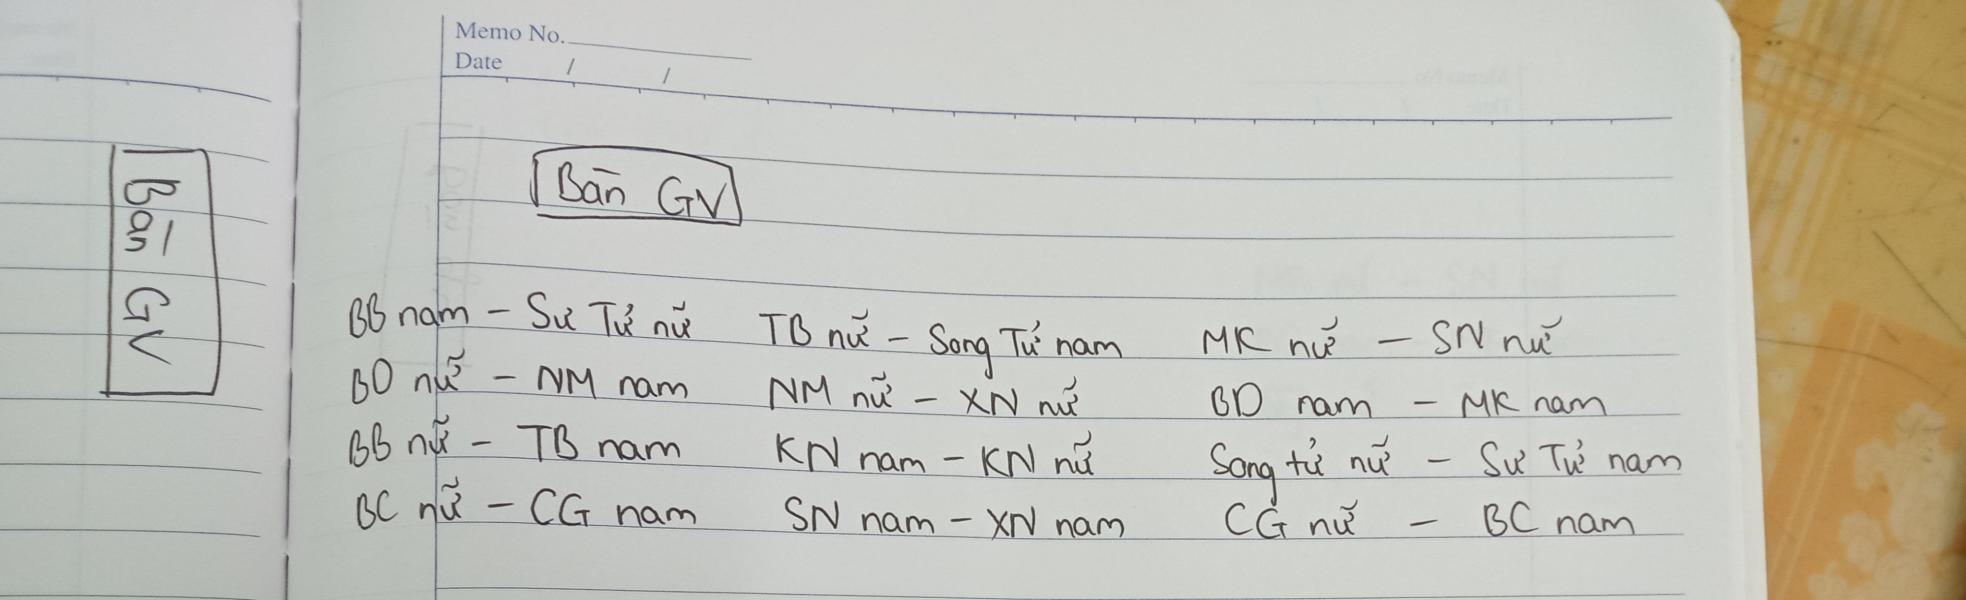 Memo No.
Date / /
Bàn GV
Bàn GV
BB nam - Sư Tử nữ TB nữ - Song Tử nam MK nữ - SN nữ
BD nữ - NM nam NM nữ - XN nữ BD nam - MK nam
BB nữ - TB nam KN nam - KN nữ Song tử nữ - Sư Tử nam
BC nữ - CG nam SN nam - XN nam CG nữ - BC nam